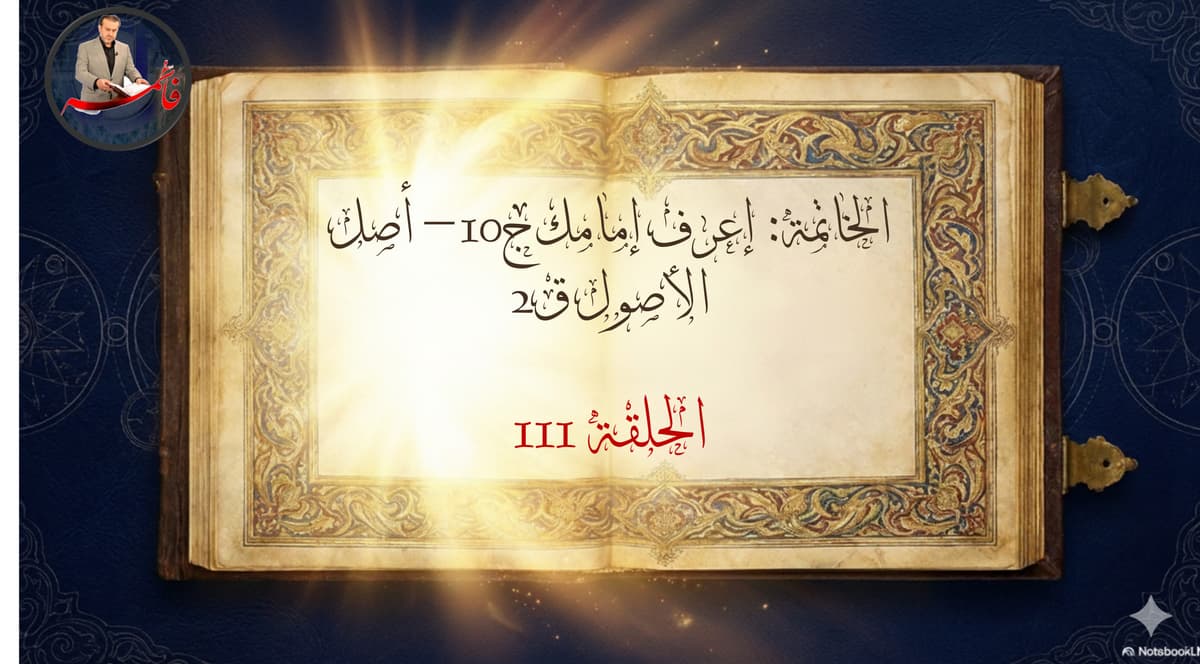 فاطمة
الخاتمة: إعرف إمامك ج10 – أصل
الأصول ق2
الحلقة 111
NotsbookLM